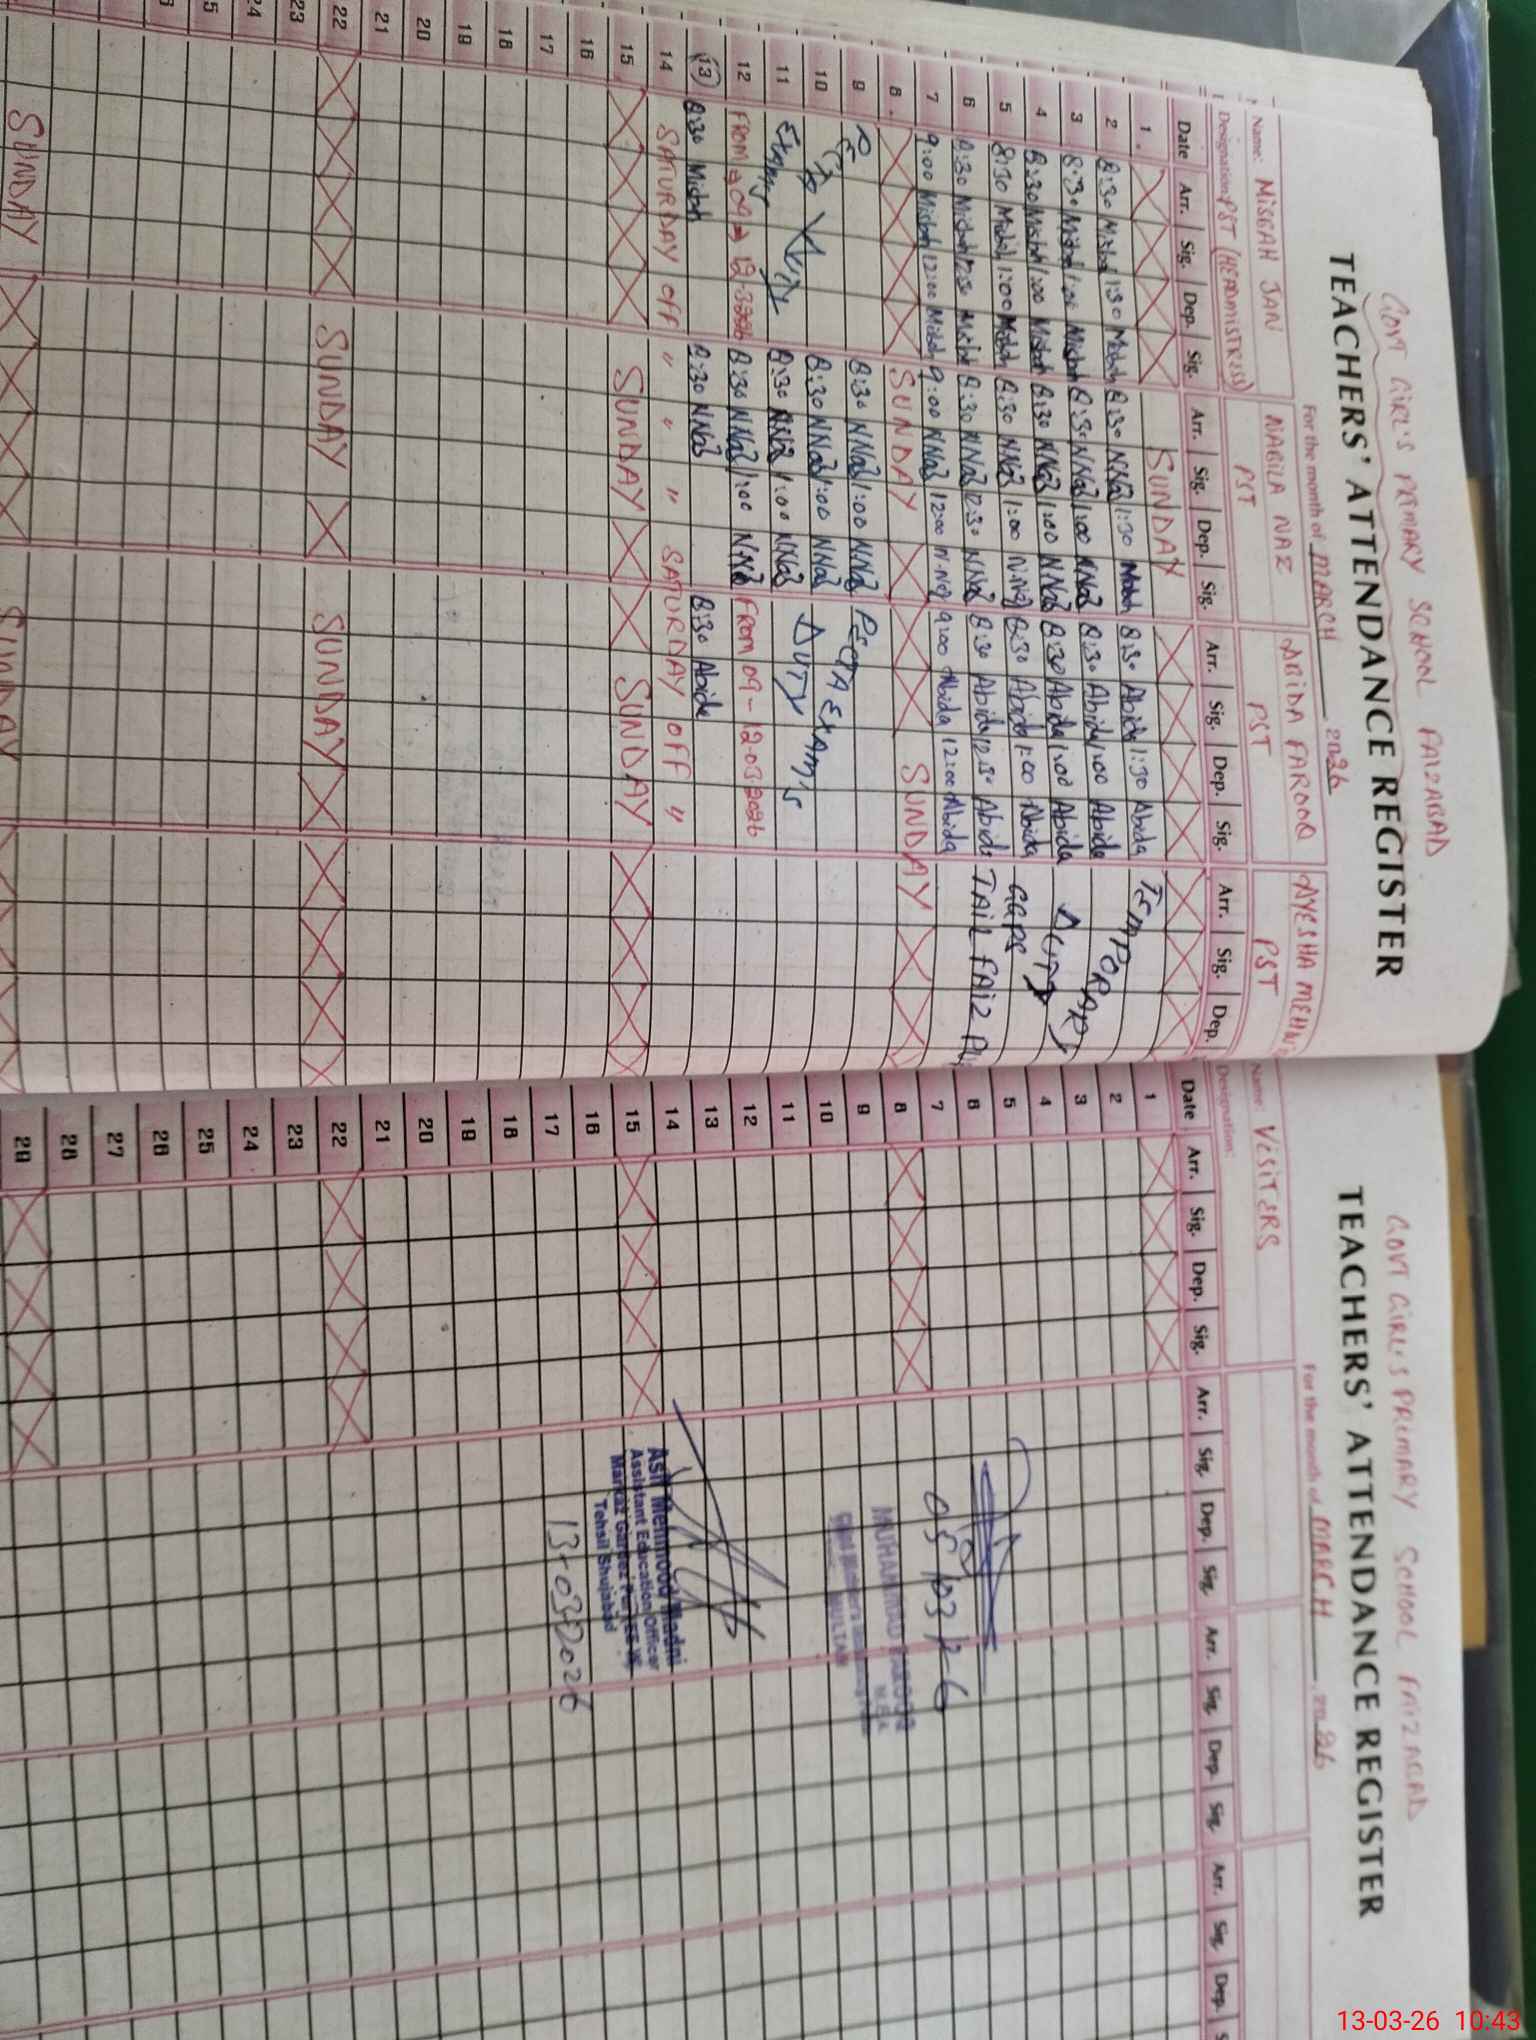 GOVT GIRL'S PRIMARY SCHOOL FAIZABAD
TEACHERS' ATTENDANCE REGISTER
For the month of MARCH 2026
Name: MISBAH JAN NABILA NAZ ABIDA FAROOQ AYESHA MEHN
Designation: PST (HEADMISTRESS) PST PST PST
Date Arr. Sig. Dep. Sig. Arr. Sig. Dep. Sig. Arr. Sig. Dep. Sig. Arr. Sig. Dep.
1 SUNDAY
2 8:30 Misbah 1:30 Misbah 8:30 NNaz 1:30 8:30 Abida 1:30 Abida TEMPORARY
3 8:30 Misbah 1:00 Misbah 8:30 NNaz 1:00 NNaz 8:30 Abida 1:00 Abida
4 8:30 Misbah 1:00 Misbah 8:30 NNaz 1:00 NNaz 8:30 Abida 1:00 Abida DUTY
5 8:30 Misbah 1:00 Misbah 8:30 NNaz 1:00 N.Naz 8:30 Abida 1:00 Abida GGPS
6 8:30 Misbah 12:30 Misbah 8:30 NNaz 12:30 NNaz 8:30 Abida 12:30 Abida TAIL FAIZ
7 9:00 Misbah 12:00 Misbah 9:00 NNaz 12:00 N.Naz 9:00 Abida 12:00 Abida
8 SUNDAY SUNDAY
9 8:30 NNaz 1:00 NNaz PECTA EXAM'S
10 DUTY 8:30 NNaz 1:00 NNaz DUTY
11 8:30 NNaz 1:00 NNaz
12 FROM 09 12-3-2026 8:30 NNaz 1:00 NNaz FROM 09-12-03-2026
13 8:30 Misbah 8:30 NNaz 8:30 Abida
14 SATURDAY OFF " " " SATURDAY OFF "
15 SUNDAY SUNDAY
16
17
18
19
20
21
22 SUNDAY SUNDAY
23
24
SUNDAY
GOVT GIRL'S PRIMARY SCHOOL FAIZABAD
TEACHERS' ATTENDANCE REGISTER
For the month of MARCH 2026
Name: VISITERS
Designation:
Date Arr. Sig. Dep. Sig. Arr. Sig. Dep. Sig. Arr. Sig. Dep. Sig. Arr. Sig. Dep.
1
2
3
4
5
6
7
05/03/26
8
MUHAMMAD FAROOQ
M.E.A
9
MULTAN
10
11
12
13
14
Asif Mehmood Madni
Assistant Education Officer
15
Tehsil Shujabad
16
13-03-2026
17
18
19
20
21
22
23
24
25
26
27
28
29
13-03-26 10:43